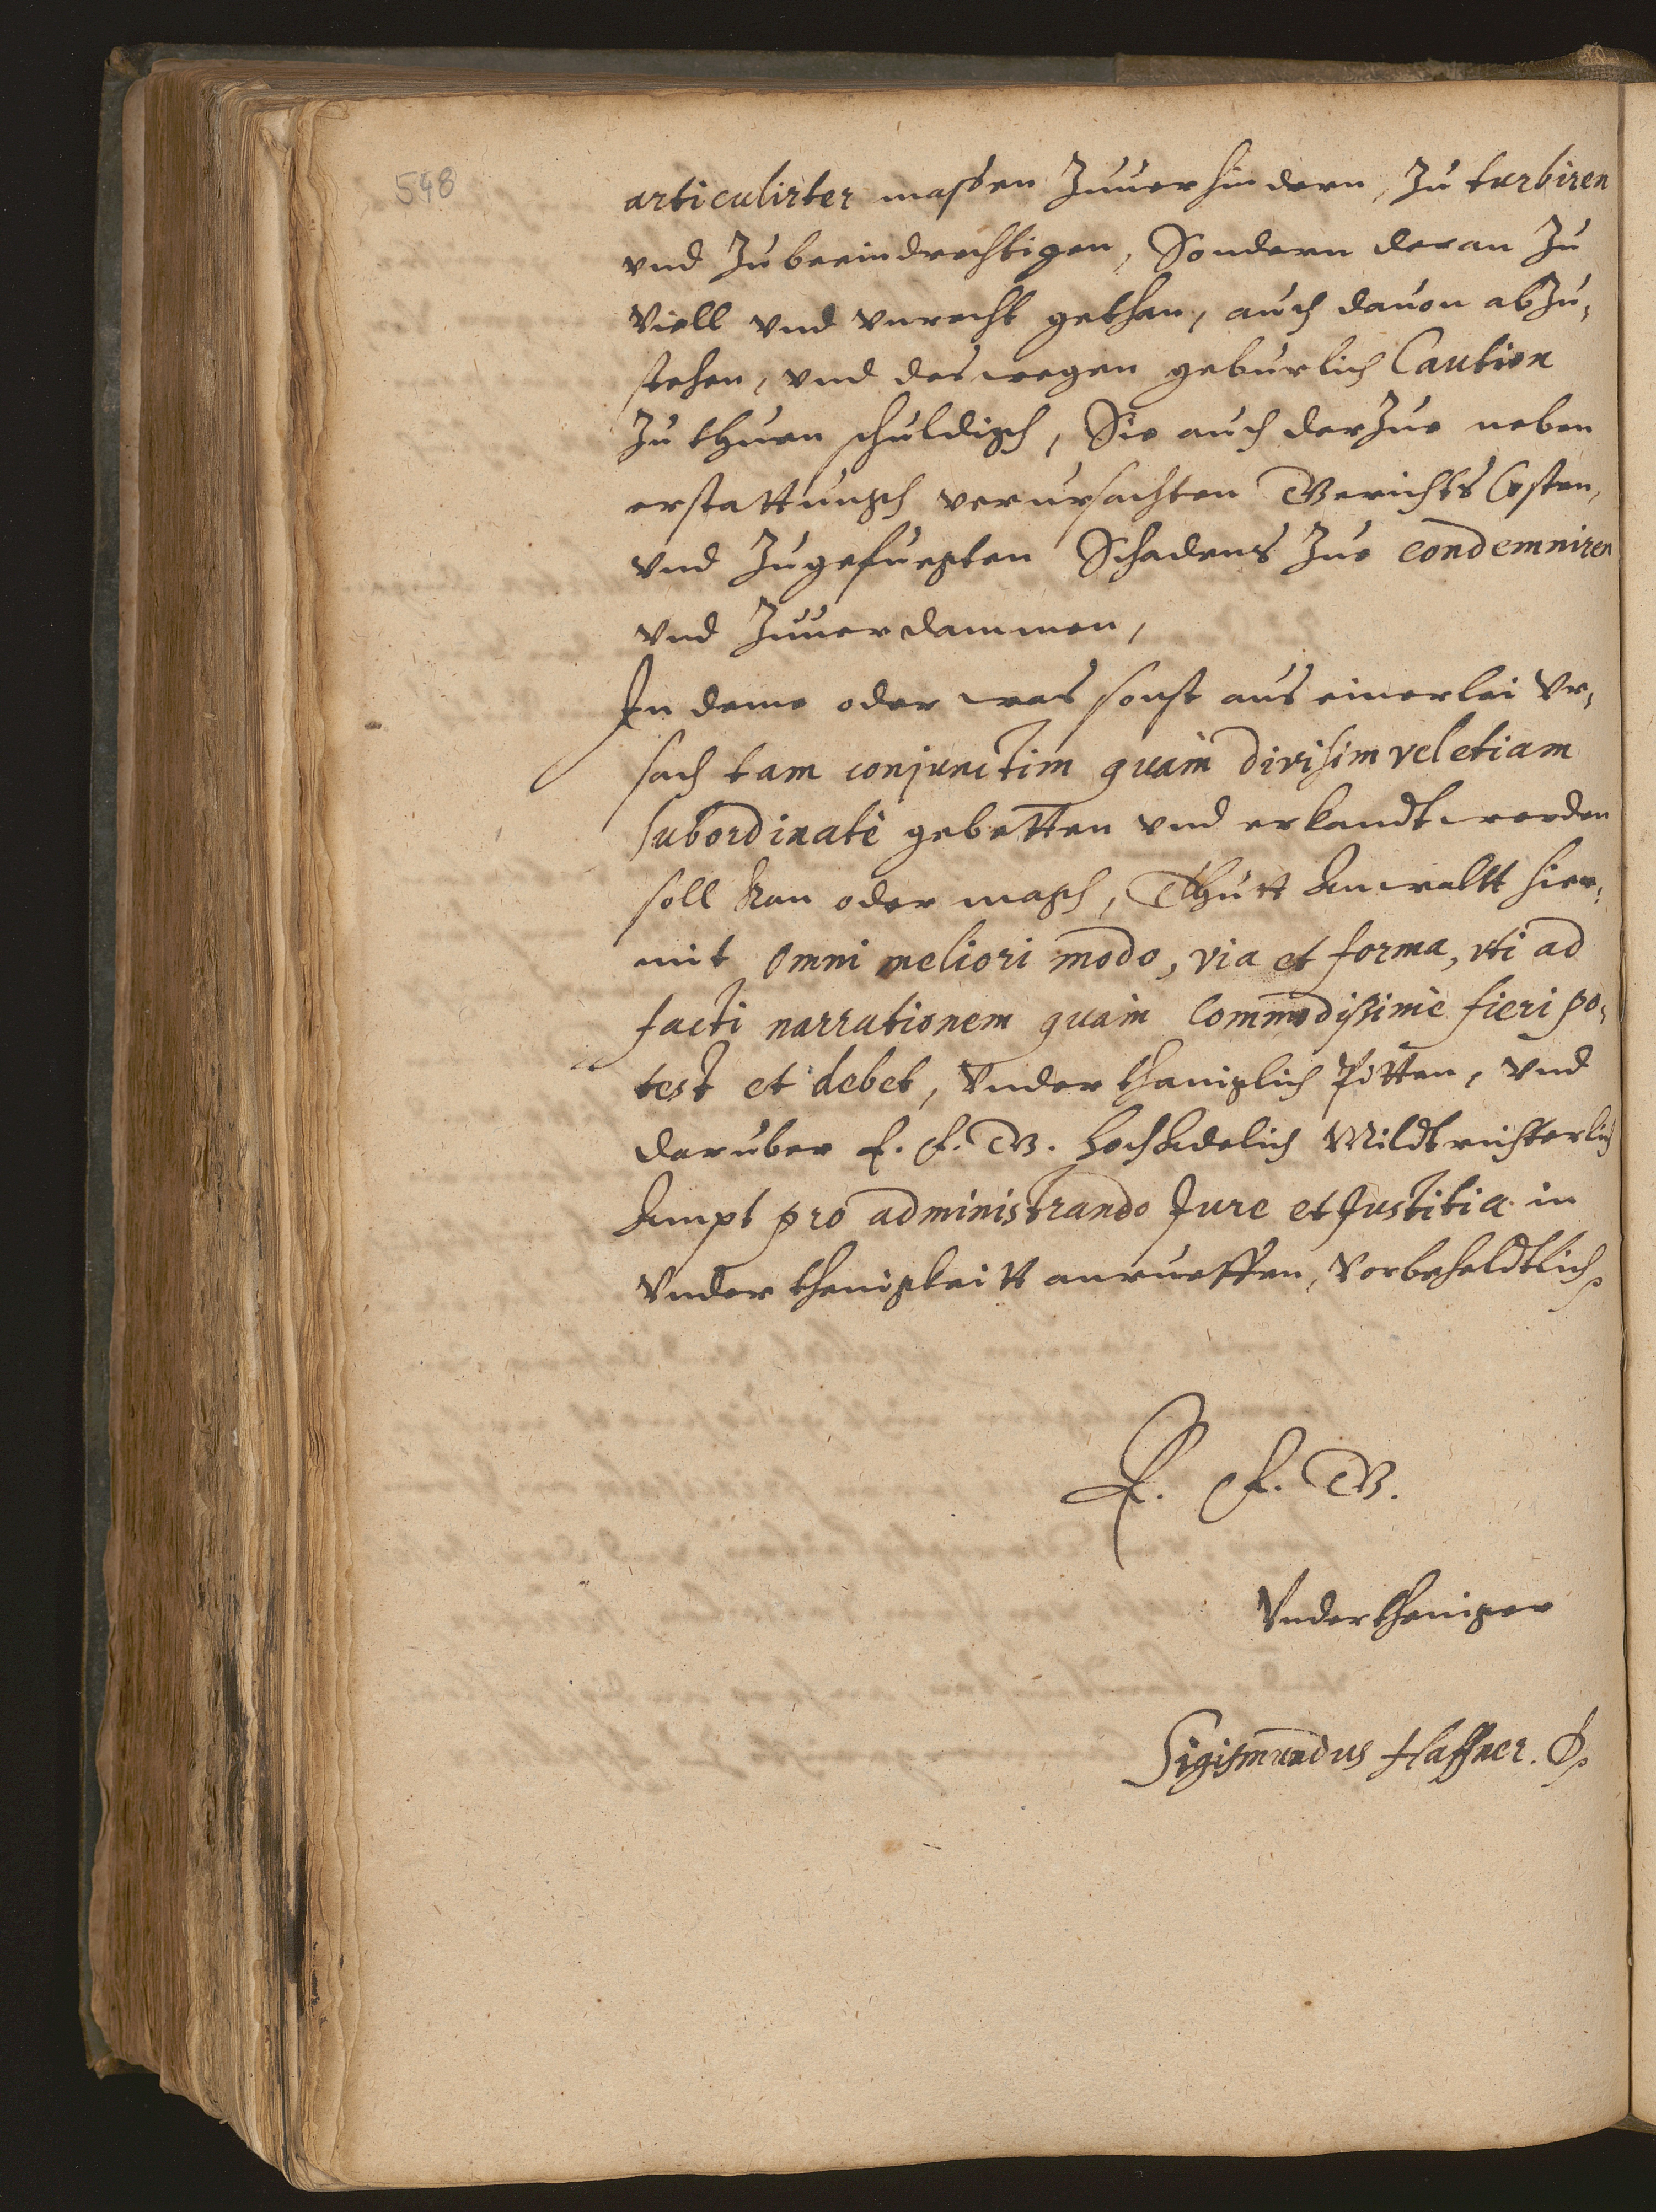 548
articulirter massen Zuuerhindern, Zu turbiren
vnd Zubeeindrechtigen, Sondern deran Zu
Viell vnd vnrecht gethan, auch dauon abZu,
stehen, vnd deswegen geburlich Caution
Zu thuen schuldigh, Sie auch darZue neben
erstattungh verursachten Gerichts Costen,
vnd Zugefuegten Schadens Zue condemniren
vnd Zuuerdammen,
In deme oder was sonst aus einerlei vr,
sach tam conjunctim quàm divisim vel etiam
subordinatè gebetten vnd erkandt werden
soll kan oder magh, Thutt Anwaltt hier,
mit omni meliori modo, via et forma, vti ad
facti narrationem quàm Commodissimè fieri po,
test et debet, Vnderthaniglich Pitten, vnd
daruber E. F. G. hochAdelich Mildtrichterlich
Ampt pro administrando Jure et Justitia in
Vnderthenigkeitt anrueffen, Vorbeheldtlich
E. F. G.
Vndertheniger
Sigismundus Haffner. D